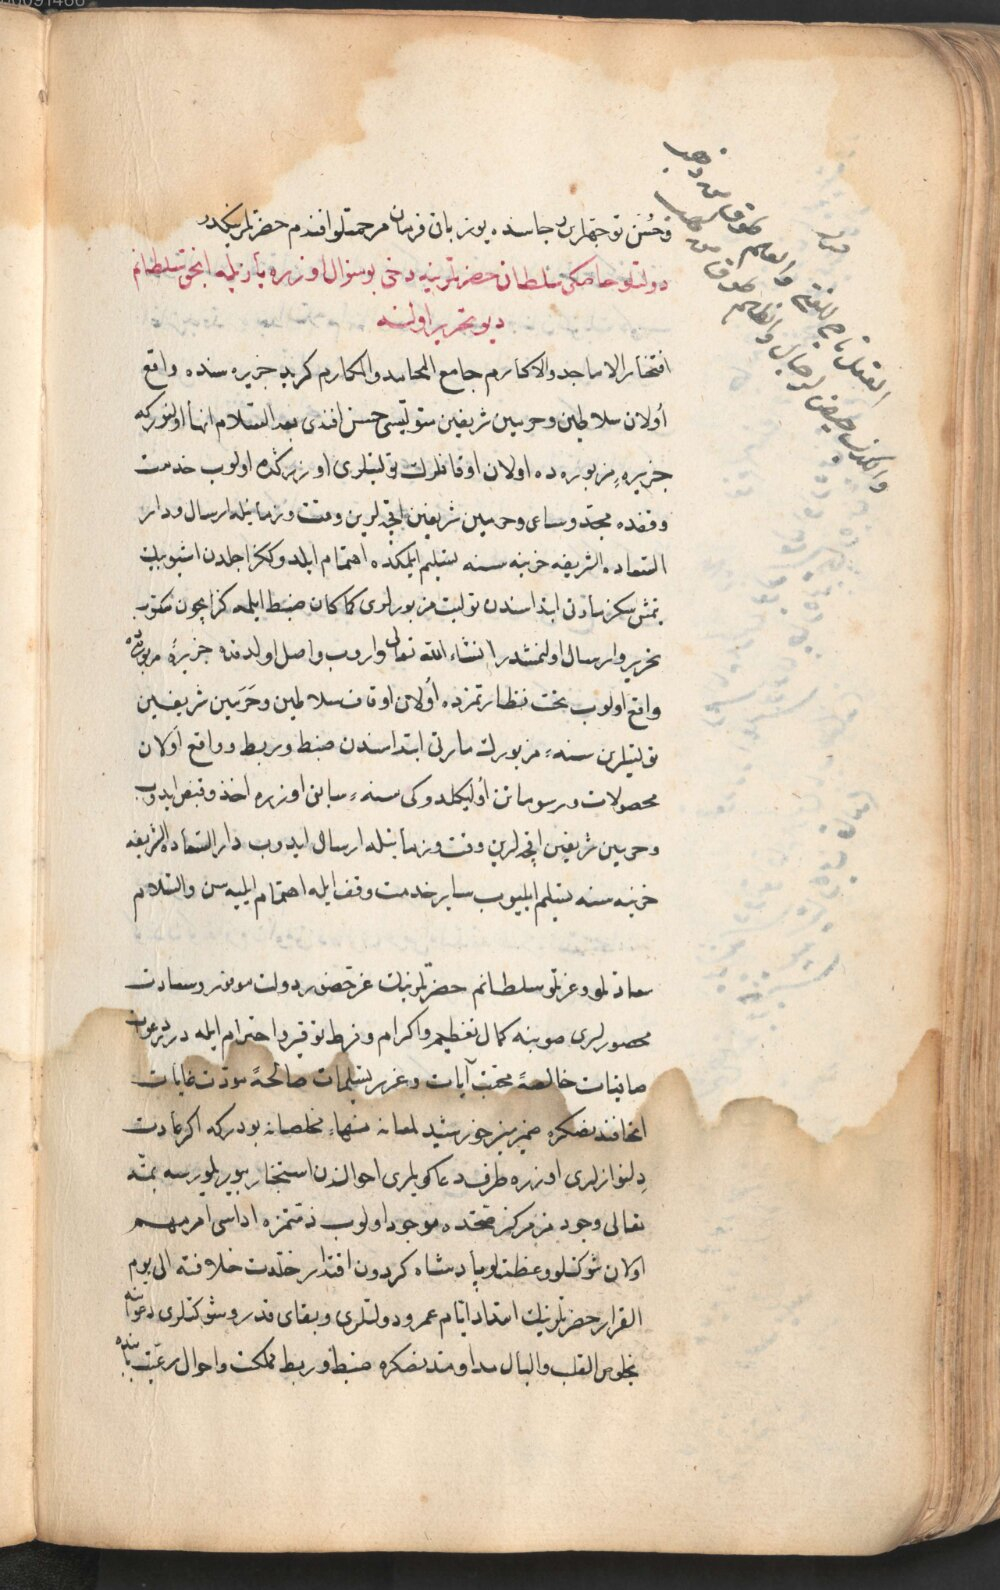 وحسن توجهلرى رجاسنده يوز باقى فرمان مرحمتلو افندم حضرتلرينكدر
دولتلو خاصكى سلطان حضرتلرينه دخى بو منوال اوزره يازيله انجق سلطانم
ديو تحرير اولنه
افتخار الاماجد والاكارم جامع المحامد والمكارم كريد جزيره سنده واقع
اولان سلاطين وحرمين شريفين متوليسى حسن افندى بعد السلام انها اولنور كه
جزيرهٔ مزبوره ده اولان اوقافلرك توليتلرى اوزركده اولوب خدمت
وقفده مجد وساعى وحرمين شريفين اقچه لرين وقت وزمانيله ارسال ودار
السعاده الشريفه خزينه سنه تسليم ايلمكده اهتمام ايلدوككز اجلدن اشبو بيك
يتمش سكز مارتى ابتداسندن توليت مزبورلرى كما كان ضبط ايلمه كز ايچون مكتوب
تحرير وارسال اولنمشدر انشاء الله تعالى واروب واصل اولدقده جزيرهٔ مزبورده
واقع اولوب تحت نظارتمزده اولان اوقاف سلاطين وحرمين شريفين
توليتلرين سنهٔ مزبورك مارتى ابتداسندن ضبط وربط وواقع اولان
محصولات ورسوماتن اوليكلدوكى سنهٔ سابق اوزره اخذ وقبض ايدوب
وحرمين شريفين اقچه لرين وقت وزمانيله ارسال ايدوب دار السعاده الشريفه
خزينه سنه تسليم ايليوب ساير خدمت وقف ايله اهتمام ايليه سن والسلام
سعادتلو وعزتلو سلطانم حضرتلرينك عزحضور دولت موفور وسعادت
محصورلرى صوبنه كمال تعظيم واكرام وفرط توقير واحترام ايله درر دعوات
صافيات خالصة محبت آيات وغرر تسليمات صالحة مودت غايات
اتحافندنصكره ضمير منير خورشيد لمعانه منهاء مخلصانه بودر كه اكر عادت
دلنوازلرى اوزره طرف دعاكويلرى احوالندن استخبار بيوريلورسه بمنه
تعالى وجود مز مركز صحتده موجود اولوب ذمتمزه اداسى امر مهم
اولان شوكتلو وعظمتلو پادشاه كردون اقتدار خلدت خلافته الى يوم
القرار حضرتلرينك امتداد ايام عمر ودولتلرى وبقاى قدر وشوكتلرى دعواتنه
بخلوص القلب والبال مداومتدنصكره ضبط وربط مملكت واحوال رعيت بابنده